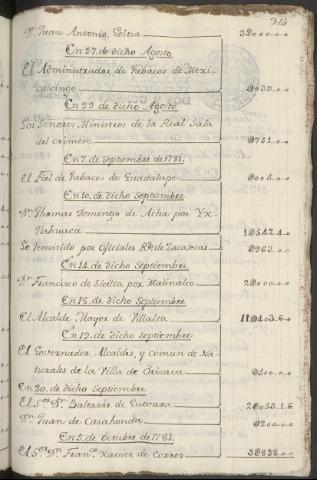 314
Dn. Juan Antonio Loicia 3D000..0..0
En 27. de dicho Agosto
El Administrador de Tabacos de Mexi-
calcingo 0030..0..0
En 29. de dicho Agosto
Los Señores Ministros de la Real Sala
del crimen 0751..0..0
En 7. de Septiembre de 1781.
El Fiel de Tabacos de Guadalupe 0005..0..0
En 10. de dicho Septiembre
Dn. Thomas Domingo de Acha por Yx-
tlahuaca 1D542.4..0
Lo remitido por Oficiales Rs. de Zacatecas 0363..0..0
En 14. de dicho Septiembre
Dn. Francisco de Sicilia por Malinalco 2D000..0..0
En 18. de dicho Septiembre
El Alcalde Mayor de Villalta 11D403.6..0
En 19. de dicho Septiembre
El Governador, Alcaldes, y comun de Na-
turales de la Villa de Orizava 0500..0..0
En 20. de dicho Septiembre
El Sor. Dn. Baltasar de Guevara 2D053.1.6
Dn. Juan de Casahonda 0200..0..0
En 5. de Octubre de 1781.
El Sor. Dn. Franco. Xavier de Torres 3D888..0..0